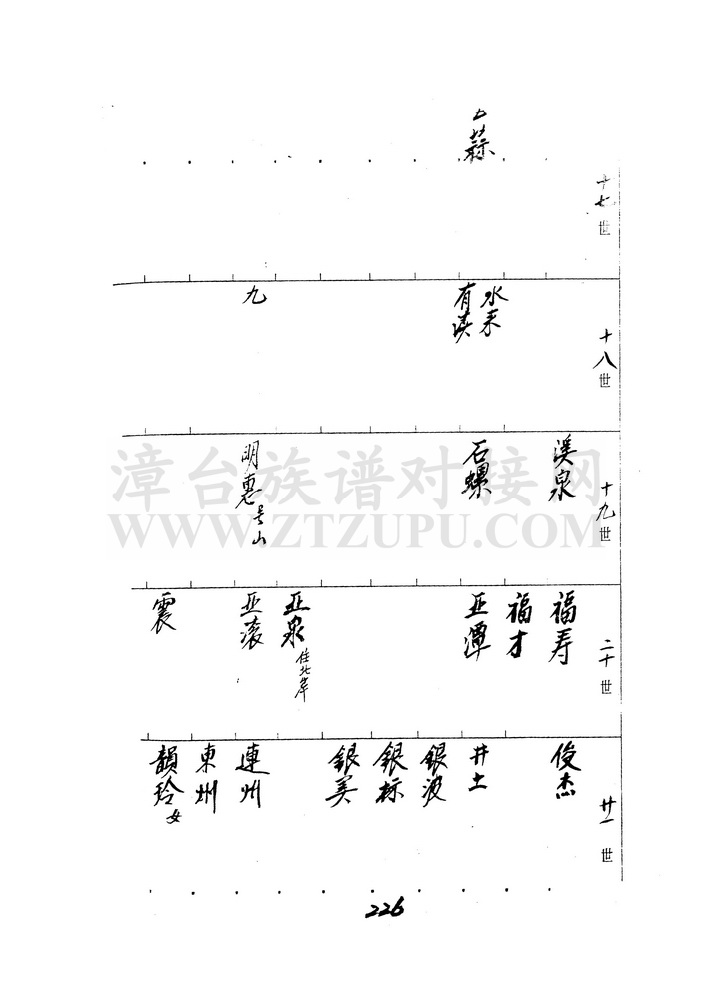 十七世
蒜
十八世
水来
有
九
十九世
溪泉
石螺
明惠 号山
二十世
福寿
福才
亚潭
亚泉 住北岸
亚滚
震
廿一世
俊杰
井土
銀波
銀标
銀美
連州
東州
韻玲 女
226
漳台族谱对接网
WWW.ZTZUPU.COM